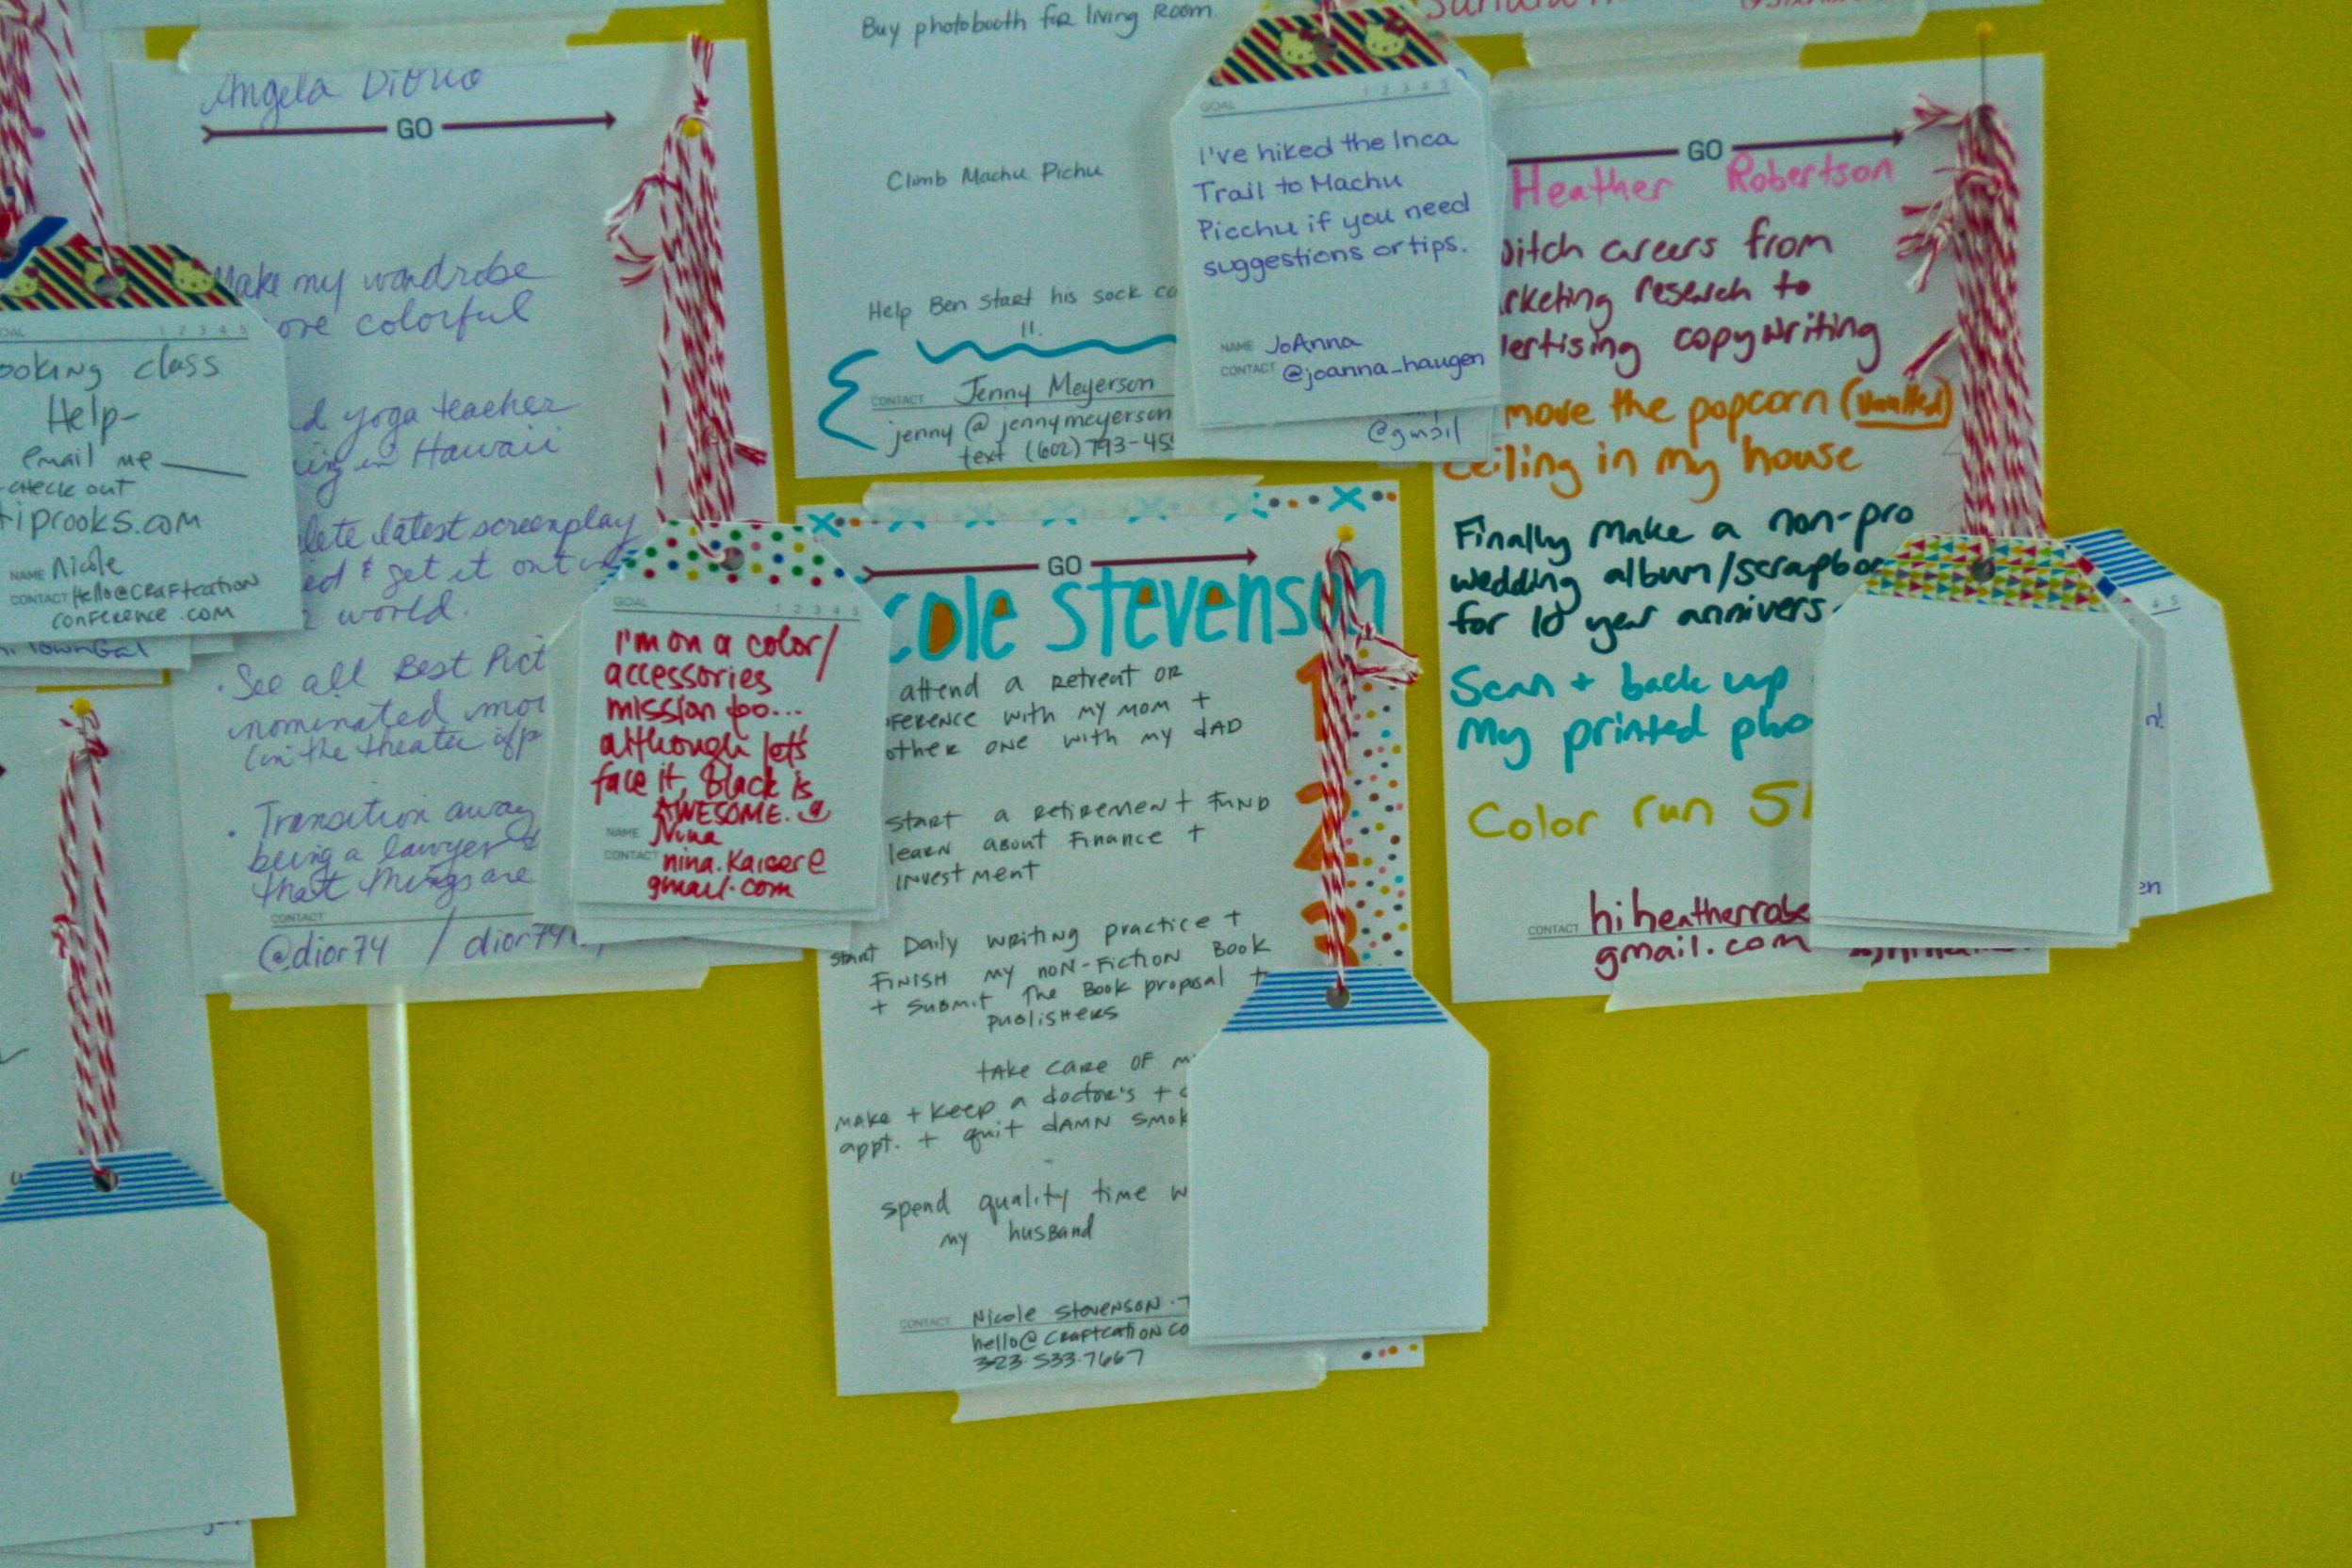 Angela Diorio
GO
Make my wardrobe
colorful
yoga teacher
in Hawaii
latest screenplay
& get it out
world.
· See all Best Pict
nominated
(in the theater if
· Transition away
being a lawyer
that things are
CONTACT
@dior74 / dior74
1 2 3 4 5
class
Help-
email me
check out
tiprooks.com
NAME Nicole
CONTACT Hello@Craftcation
conference.com
Buy photobooth for living Room
Climb Machu Pichu
Help Ben start his sock co
CONTACT Jenny Meyerson
jenny@jennymeyerson
text (602) 793-45
GOAL 1 2 3 4 5
I've hiked the Inca
Trail to Machu
Picchu if you need
suggestions or tips.
NAME JoAnna
CONTACT @joanna_haugen
@gmail
GO
Heather Robertson
careers from
research to
copywriting
move the popcorn (vaulted)
ceiling in my house
Finally make a non-pro
wedding album/scrapboo
for 10 year annivers
Scan + back up
my printed pho
Color run 5
CONTACT hiheatherrobe
gmail.com
GOAL 1 2 3 4 5
I'm on a color/
accessories
mission too...
although let's
face it, Black is
AWESOME.
NAME Nina
CONTACT nina.Kaiser@
gmail.com
GO
cole stevenson
1
attend a Retreat or
ference with my mom +
other one with my dad
2
start a retirement fund
learn about finance +
investment
3
start Daily writing practice +
finish my non-fiction book
+ submit the book proposal +
publishers
take care of m
make + keep a doctor's +
appt. + quit damn smok
spend quality time w
my husband
CONTACT Nicole Stevenson
hello@craftcation co
323.533.7667
4 5
n!
en